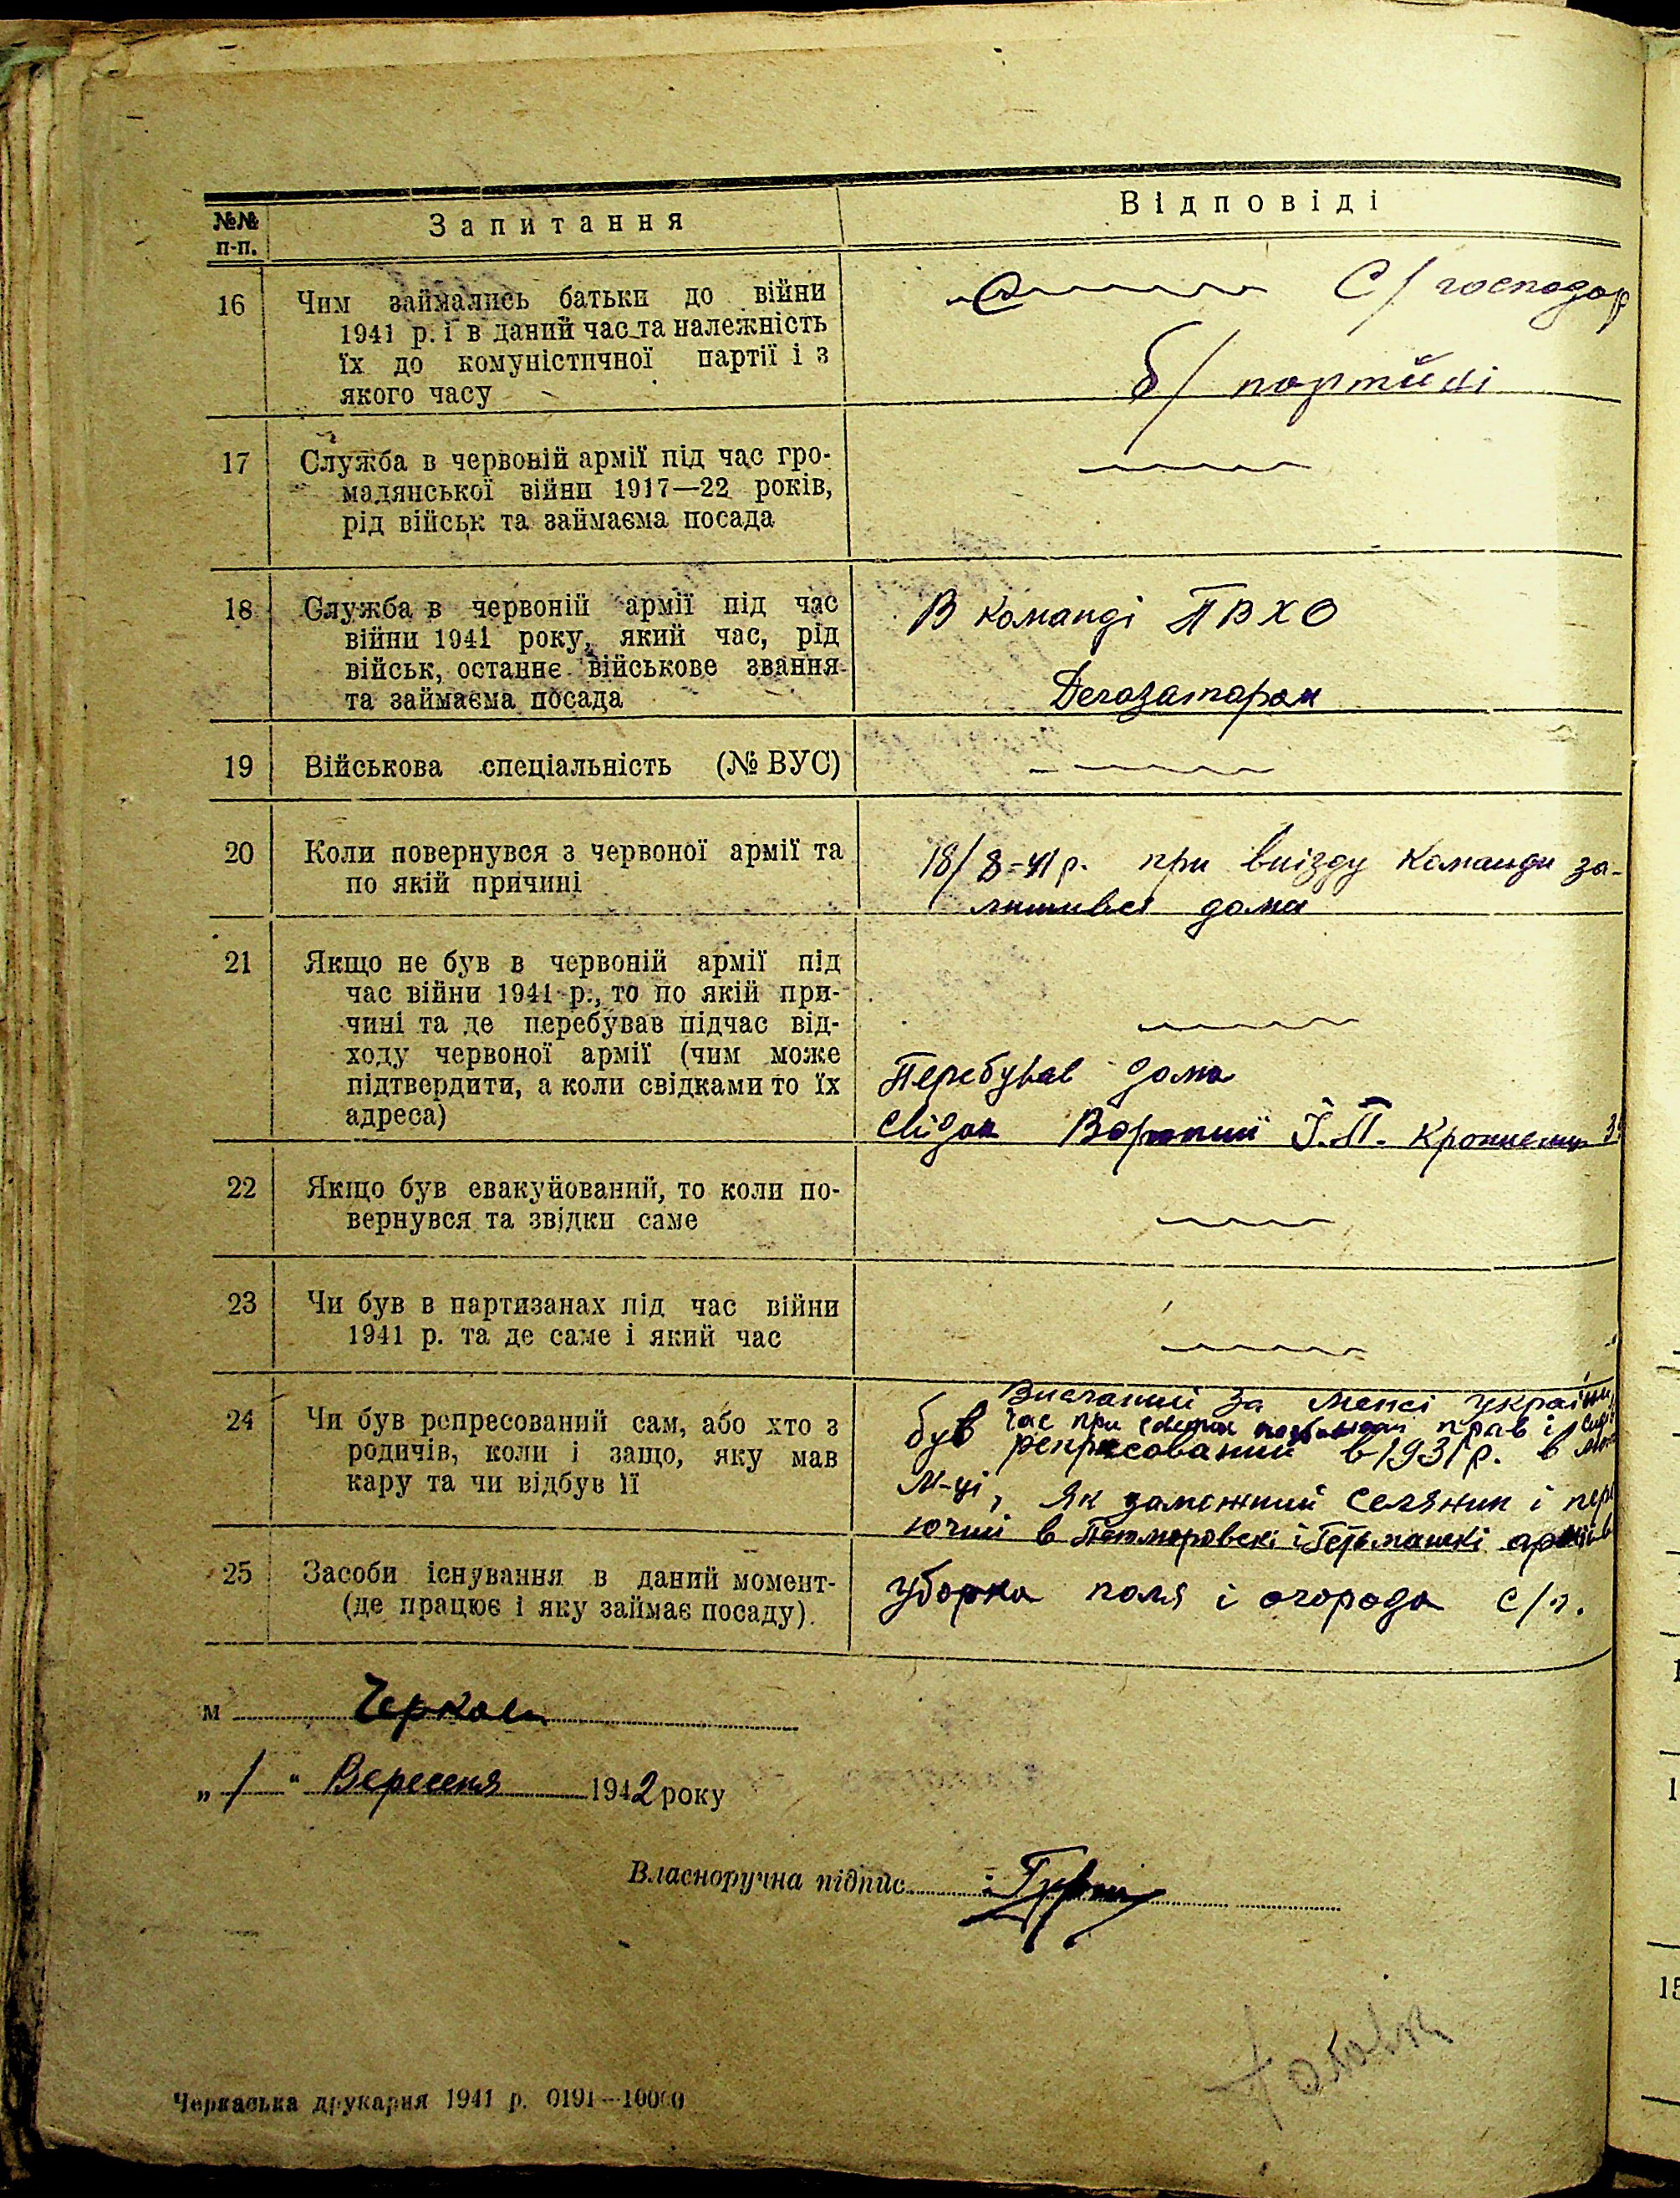 №№ п-п.
Запитання
Відповіді
16
Чим займались батьки до війни
1941 р. і в даний час та належність
їх до комуністичної партії і з
якого часу
С/господар
б/ партійні
17
Служба в червоній армії під час гро-
мадянської війни 1917—22 років,
рід військ та займаєма посада
18
Служба в червоній армії під час
війни 1941 року, який час, рід
військ, останнє військове звання
та займаєма посада
В команді ПВХО
Дегозатором
19
Військова спеціальність (№ ВУС)
20
Коли повернувся з червоної армії та
по якій причині
18/8-41 р. при виїзду команди за-
лишився дома
21
Якщо не був в червоній армії під
час війни 1941 р., то по якій при-
чині та де перебував підчас від-
ходу червоної армії (чим може
підтвердити, а коли свідками то їх
адреса)
Перебував дома
Свідок І. П.
22
Якщо був евакуйований, то коли по-
вернувся та звідки саме
23
Чи був в партизанах під час війни
1941 р. та де саме і який час
24
Чи був репресований сам, або хто з
родичів, коли і защо, яку мав
кару та чи відбув її
Висланий за межі України
час при прав і
був репресований в 1931 р. в
м-ці, як заможний селянин і
ючий в і
25
Засоби існування в даний момент-
(де працює і яку займає посаду).
уборка поля і огорода с/г.
м Черкаси
„ 1 " Вересня 1942 року
Власноручна підпис
Черкаська друкарня 1941 р. 0191—10000